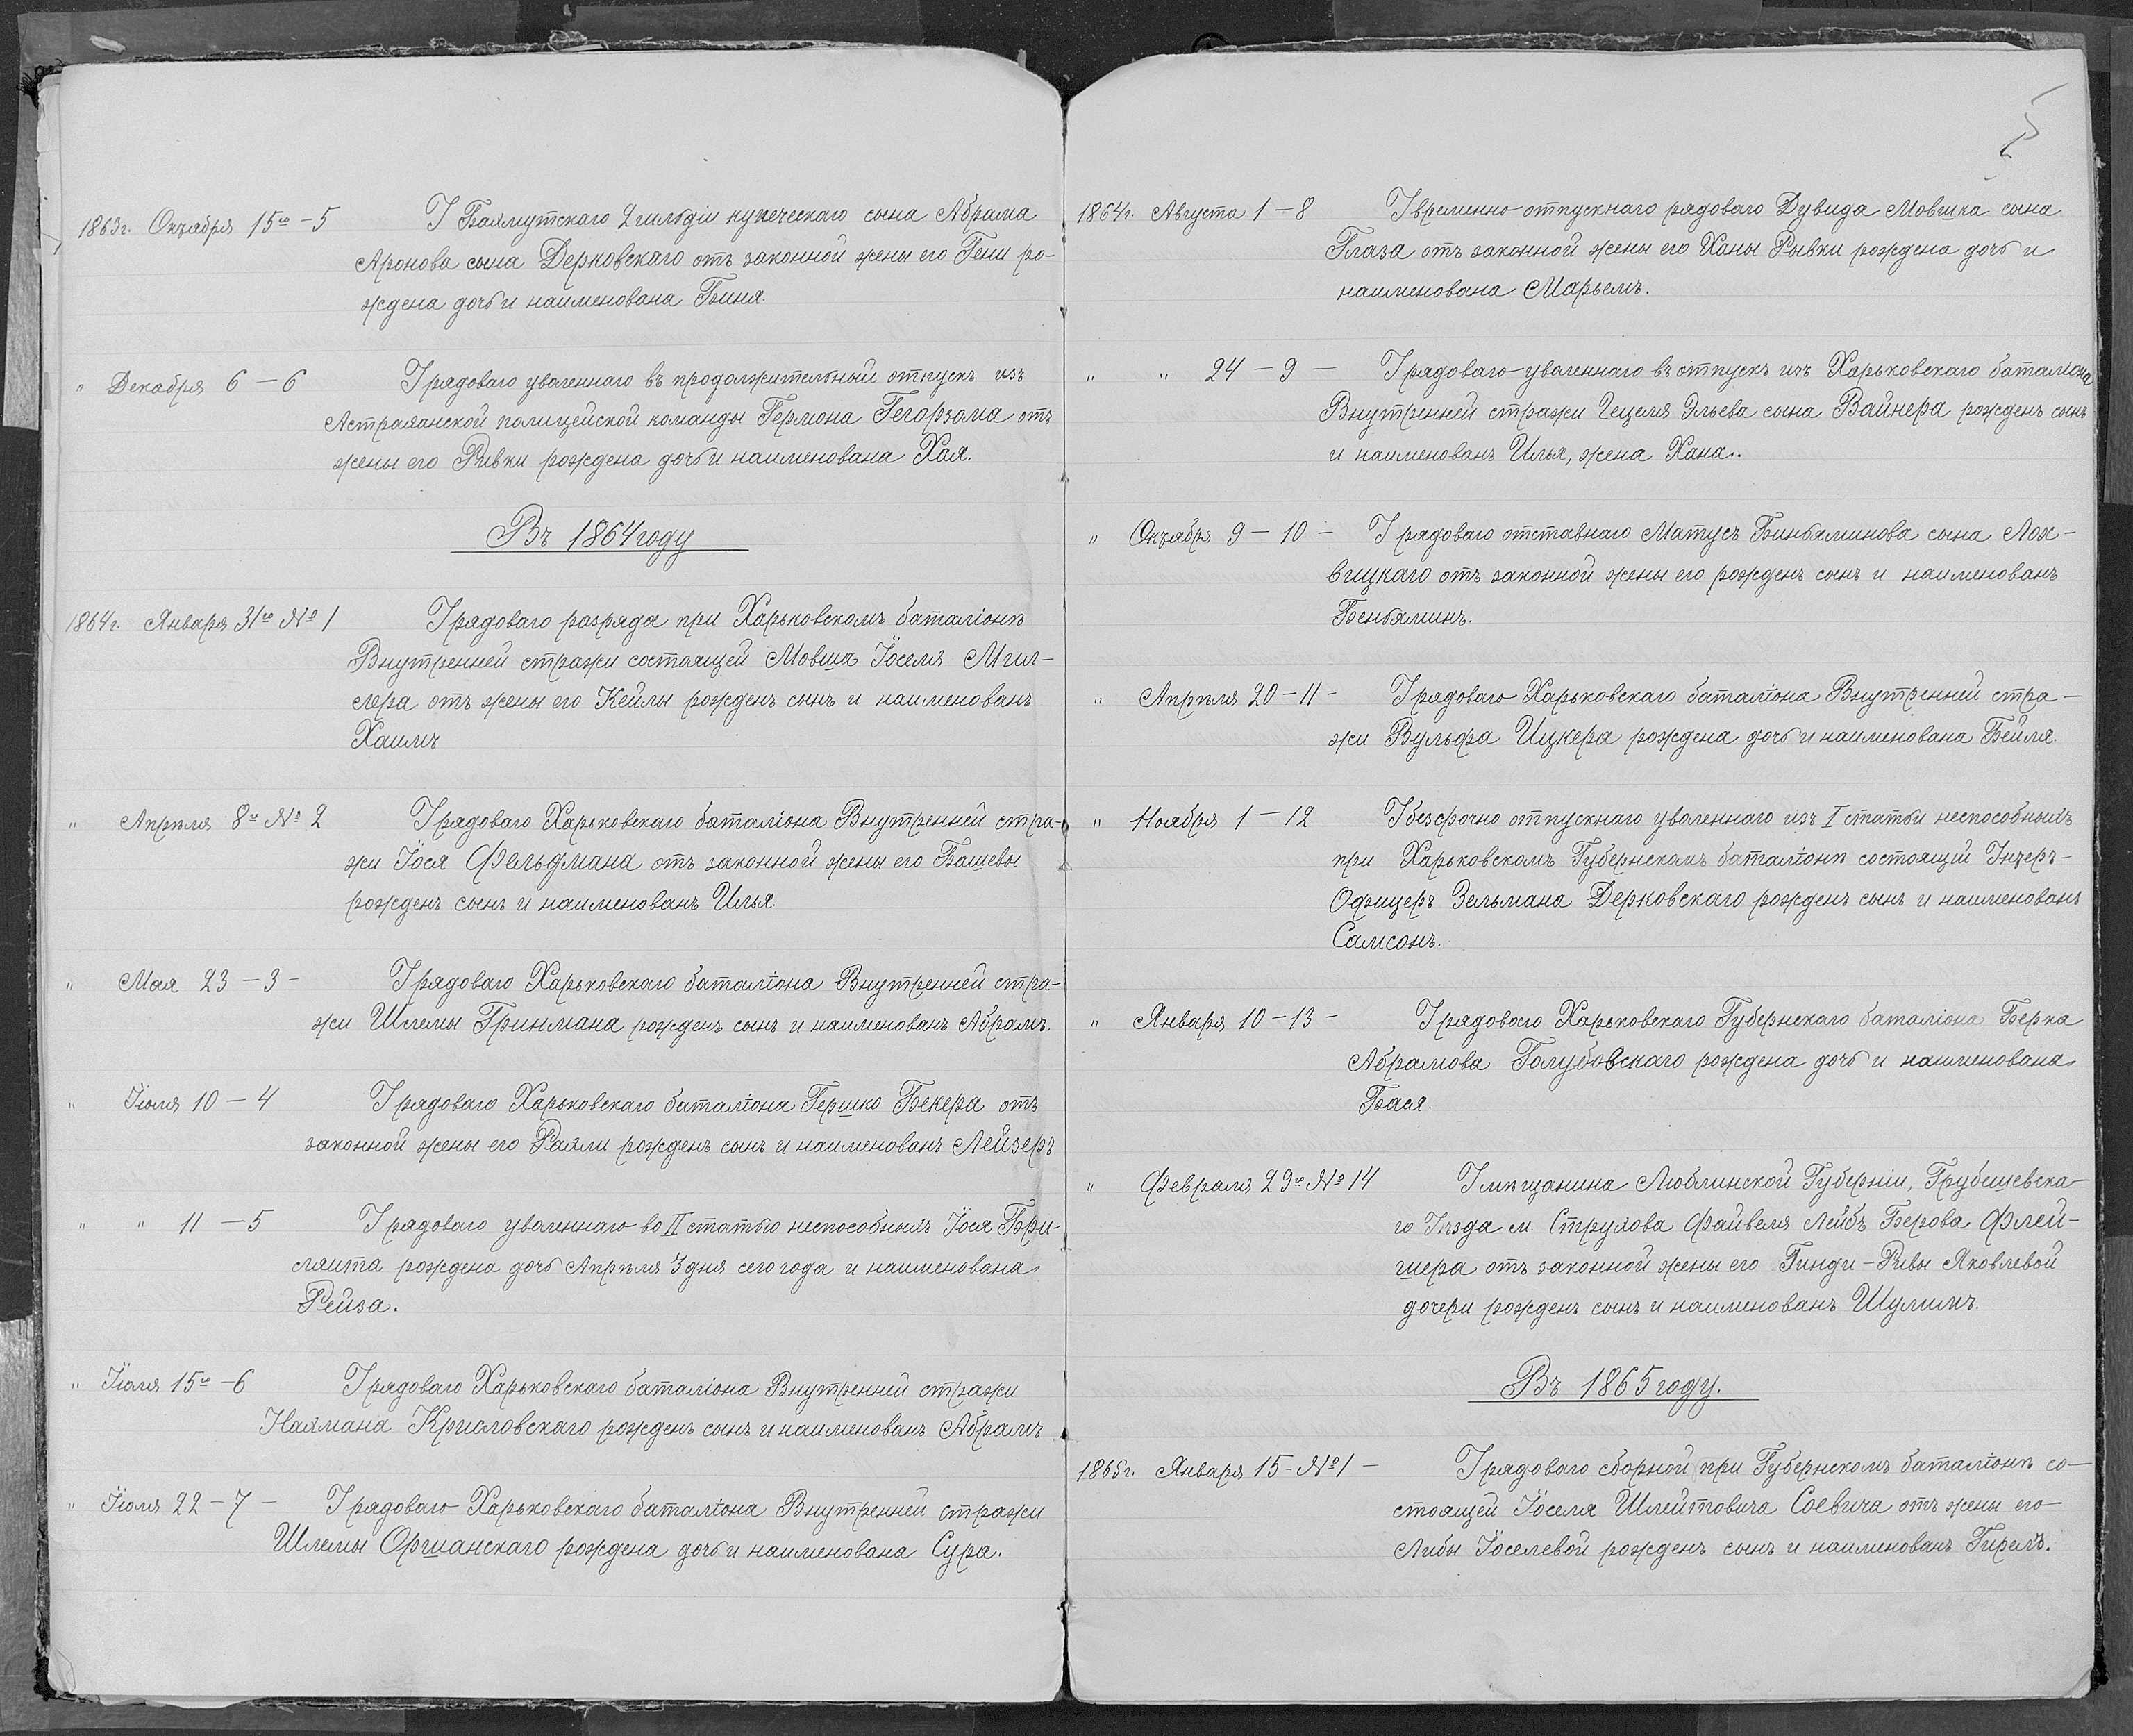 1863г. Октября 15го – 5 У Бахмутскаго 2 гильдіи купеческаго сына Абрама
Аронова сына Дерковскаго отъ законной жены его Гени ро-
ждена дочь и наименована Биня.
" Декабря 6 – 6 У рядоваго уволеннаго въ продолжительный отпускъ изъ
Астраханской полицейской команды Гермона Гегорзома отъ
жены его Ривки рождена дочь и наименована Хая.
Въ 1864 году
1864г. Января 31го № 1 У рядоваго разряда при Харьковскомъ баталіонѣ
Внутренней стражи состоящей Мовша Іоселя Мил-
лера отъ жены его Кейлы рожденъ сынъ и наименованъ
Хаимъ
" Апрѣля 8го № 2 У рядоваго Харьковскаго баталіона Внутренней стра-
жи Іося Фельдмана отъ законной жены его Башевы
рожденъ сынъ и наименованъ Илья.
" Мая 23 – 3 – У рядоваго Харьковскаго баталіона Внутренней стра-
жи Шлемы Гринмана рожденъ сынъ и наименованъ Абрамъ.
" Іюля 10 – 4 У рядоваго Харьковскаго баталіона Гершко Бекера отъ
законной жены его Рахли рожденъ сынъ и наименованъ Лейзеръ
" " 11 – 5 У рядоваго уволеннаго во II статью неспособныхъ Іося Бри-
лянта рождена дочь Апрѣля 3 дня сего года и наименована
Рейза.
" Іюля 15го – 6 У рядоваго Харьковскаго баталіона Внутренней стражи
Нахмана Крисловскаго рожденъ сынъ и наименованъ Абрамъ
" Іюля 22 – 7 – У рядоваго Харьковскаго баталіона Внутренней стражи
Шлемы Оршанскаго рождена дочь и наименована Сура.
1864г. Августа 1 – 8 У временно отпускнаго рядоваго Дувида Мовшка сына
Глаза отъ законной жены его Ханы Рывки рождена дочь и
наименована Марьемъ.
" " 24 – 9 – У рядоваго уволеннаго въ отпускъ изъ Харьковскаго баталіона
Внутренней стражи Гецеля Эльева сына Вайнера рожденъ сынъ
и наименованъ Илья, жена Хана.
" Октября 9 – 10 – У рядоваго отставнаго Матусъ Биньяминова сына Лох-
вицкаго отъ законной жены его рожденъ сынъ и наименованъ
Беньяминъ.
" Апрѣля 20 – 11 – У рядоваго Харьковскаго баталіона Внутренней стра-
жи Вульфа Ицкера рождена дочь и наименована Бейля.
" Ноября 1 – 12 У безсрочно отпускнаго уволеннаго изъ I статьи неспособныхъ
при Харьковскомъ Губернскомъ баталіонѣ состоящій Унтеръ-
Офицеръ Зельмана Дерковскаго рожденъ сынъ и наименованъ
Самсонъ.
" Января 10 – 13 – У рядоваго Харьковскаго Губернскаго баталіона Берка
Абрамова Голубовскаго рождена дочь и наименована
Бася.
" Февраля 29го № 14 У мѣщанина Люблинской Губерніи, Грубешевска-
го Уѣзда м. Струхова Файвеля Лейбъ Берова Флей-
шера отъ законной жены его Гинди-Ривы Яковлевой
дочери рожденъ сынъ и наименованъ Шулимъ.
Въ 1865 году.
1865г. Января 15 – № 1 – У рядоваго сборной при Губернскомъ баталіонѣ со-
стоящей Іоселя Шлейтовича Соевича отъ жены его
Либы Іоселевой рожденъ сынъ и наименованъ Гирелъ.